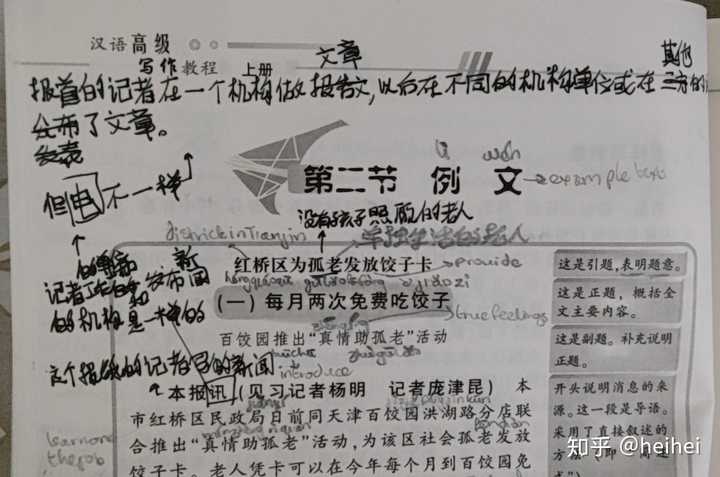 汉语高级
写作教程 上册
文章
其他
报首的记者在一个机构做报告文,以后在不同的机构单位或在三方的
分布了文章。
发表
但电不一样
第二节 例文
lì wén
example text
没有孩子照顾的老人
district in Tianjin
单独生活的老人
红桥区为孤老发放饺子卡
provide
(一)每月两次免费吃饺子
true feelings
百饺园推出“真情助孤老”活动
introduce
记者工作的
和发布新闻
的机构是一样的
这个报纸的记者写的新闻
本报讯(见习记者杨明 记者庞津昆) 本
市红桥区民政局日前同天津百饺园洪湖路分店联
合推出“真情助孤老”活动,为该区社会孤老发放
饺子卡。老人凭卡可以在今年每个月到百饺园免
learn on
the job
这是引题,表明题意。
这是正题,概括全
文主要内容。
这是副题。补充说明
正题。
开头说明消息的来
源。这一段是导语。
采用了直接叙述的
方
知乎 @heihei